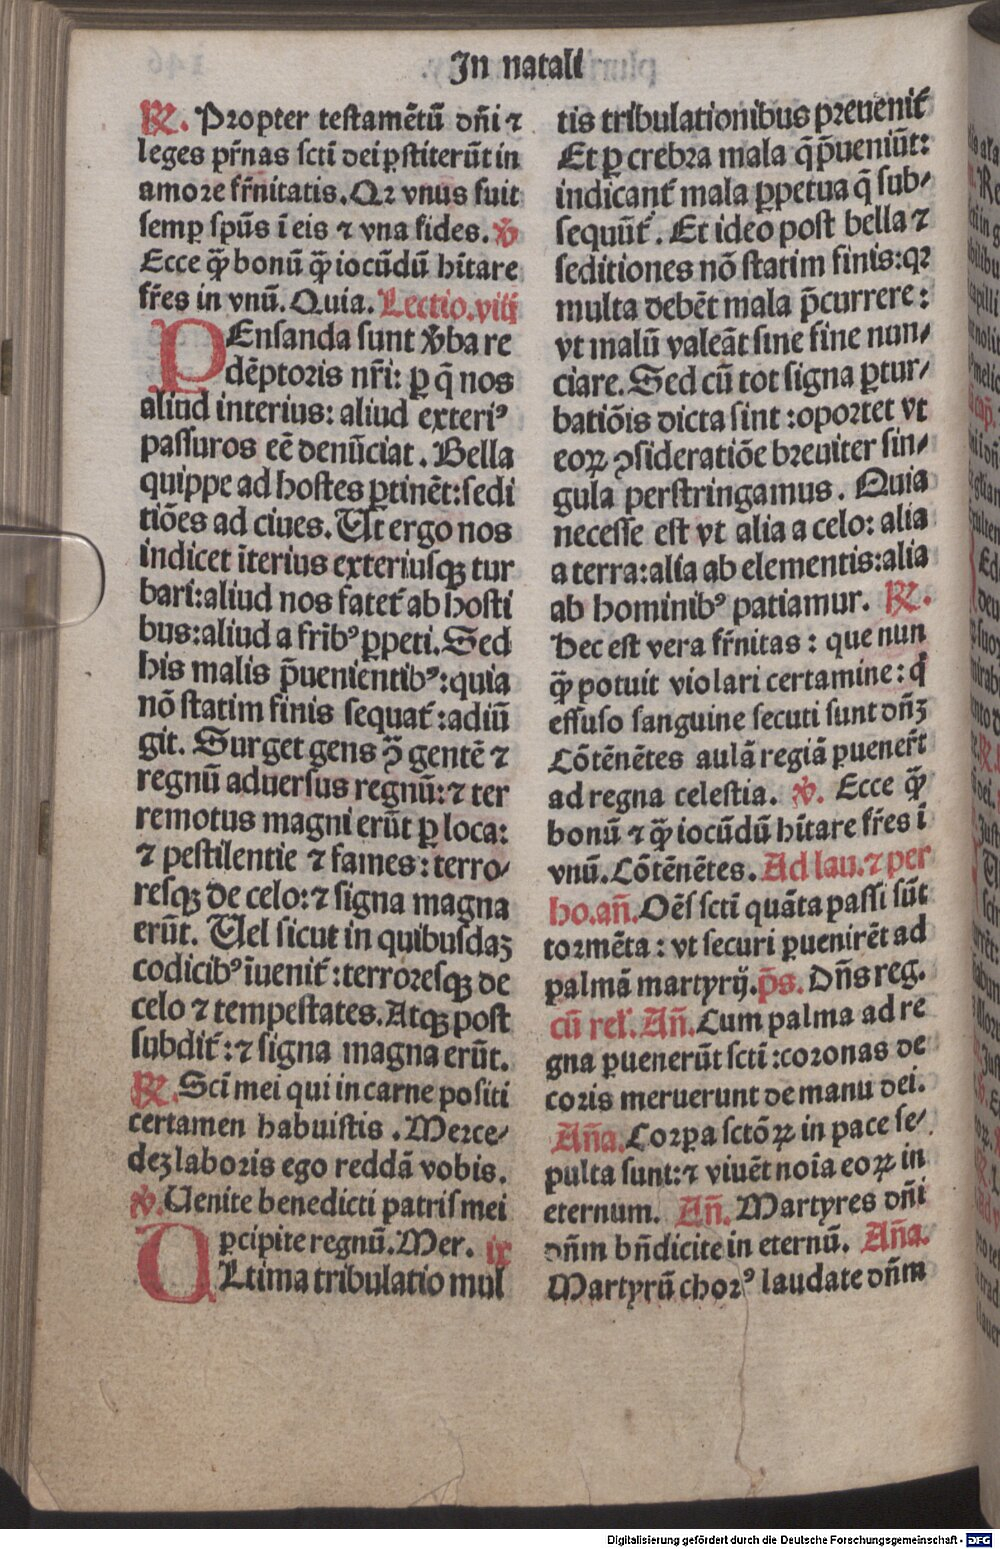 In natali
℟. Propter testamētū dn̄i ⁊
leges pr̄nas scti dei ꝑstiterūt in
amore fr̄nitatis. Qꝛ vnus fuit
semꝑ spūs ī eis ⁊ vna fides. ℣
Ecce q̄ꝫ bonū q̄ꝫ iocūdū hītare
fr̄es in vnū. Quia. Lectio. viij
PEnsanda sunt v̄ba re
dēptoris nr̄i: ꝑ q̄ nos
aliud interius: aliud exteriꝰ
passuros eē denūciat. Bella
quippe ad hostes ꝑtinēt: sedi
tiōes ad ciues. Ut ergo nos
indicet īterius exteriusqꝫ tur
bari: aliud nos fatet᷑ ab hosti
bus: aliud a frībꝰ ꝑpeti. Sed
his malis p̄uenientibꝰ: quia
nō statim finis sequat᷑: adiū
git. Surget gens ꝯ̄ gentē ⁊
regnū aduersus regnū: ⁊ ter
remotus magni erūt ꝑ loca:
⁊ pestilentie ⁊ fames: terro/
resqꝫ de celo: ⁊ signa magna
erūt. Uel sicut in quibusdaꝫ
codicibꝰ īuenit᷑: terroresqꝫ de
celo ⁊ tempestates. Atqꝫ post
subdit᷑: ⁊ signa magna erūt.
℟. Scī mei qui in carne positi
certamen habuistis. Merce/
deꝫ laboris ego reddā vobis.
℣. Uenite benedicti patris mei
ꝑcipite regnū. Mer. ix
ULtima tribulatio mul
tis tribulationibus preuenit᷑
Et ꝑ crebra mala q̄ p̄ueniūt:
indicant᷑ mala ꝑpetua q̄ sub/
sequūt᷑. Et ideo post bella ⁊
seditiones nō statim finis: qꝛ
multa debēt mala p̄currere:
vt malū valeāt sine fine nun/
ciare. Sed cū tot signa ꝑtur/
batiōis dicta sint: oportet vt
eoꝝ ꝯsideratiōe breuiter sin/
gula perstringamus. Quia
necesse est vt alia a celo: alia
a terra: alia ab elementis: alia
ab hominibꝰ patiamur. ℟.
Hec est vera fr̄nitas: que nun
q̄ꝫ potuit violari certamine: q̄
effuso sanguine secuti sunt dn̄ꝫ
Cōtēnētes aulā regiā ꝑuener̄t
ad regna celestia. ℣. Ecce q̄ꝫ
bonū ⁊ q̄ꝫ iocūdū hītare fr̄es ī
vnū. Cōtēnētes. Ad lau. ⁊ per
ho. an̄. Oēs scti quāta passi sūt
tormēta: vt securi ꝑuenirēt ad
palmā martyrij. p̄s. Dn̄s reg.
cū rel᷑. An̄. Cum palma ad re
gna ꝑuenerūt scti: coronas de
coris meruerunt de manu dei.
An̄a. Corꝑa sctōꝝ in pace se/
pulta sunt: ⁊ viuēt noīa eoꝝ in
eternum. An̄. Martyres dn̄i
dn̄m bn̄dicite in eternū. An̄a.
Martyrū chorꝰ laudate dn̄m
Digitalisierung gefördert durch die Deutsche Forschungsgemeinschaft - DFG